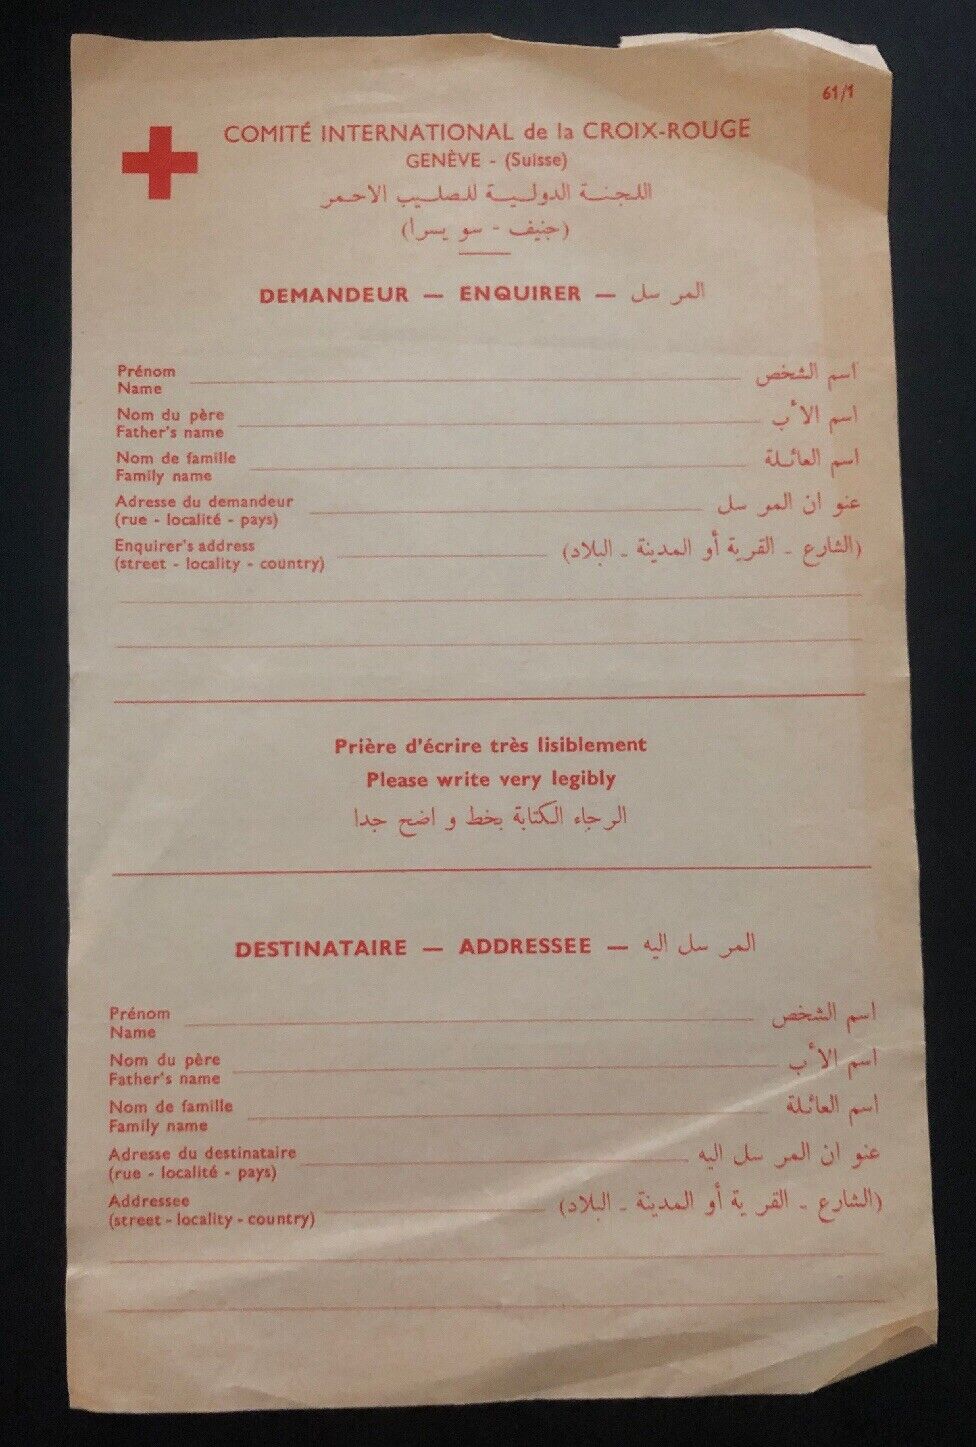 61/1
COMITÉ INTERNATIONAL de la CROIX-ROUGE
GENÈVE - (Suisse)
اللجنة الدولية للصليب الاحمر
(جنيف - سويسرا)
DEMANDEUR — ENQUIRER — المرسل
Prénom
Name
اسم الشخص
Nom du père
Father's name
اسم الأب
Nom de famille
Family name
اسم العائلة
Adresse du demandeur
(rue - localité - pays)
عنوان المرسل
Enquirer's address
(street - locality - country)
(الشارع - القرية أو المدينة - البلاد)
Prière d'écrire très lisiblement
Please write very legibly
الرجاء الكتابة بخط واضح جدا
DESTINATAIRE — ADDRESSEE — المرسل اليه
Prénom
Name
اسم الشخص
Nom du père
Father's name
اسم الأب
Nom de famille
Family name
اسم العائلة
Adresse du destinataire
(rue - localité - pays)
عنوان المرسل اليه
Addressee
(street - locality - country)
(الشارع - القرية أو المدينة - البلاد)